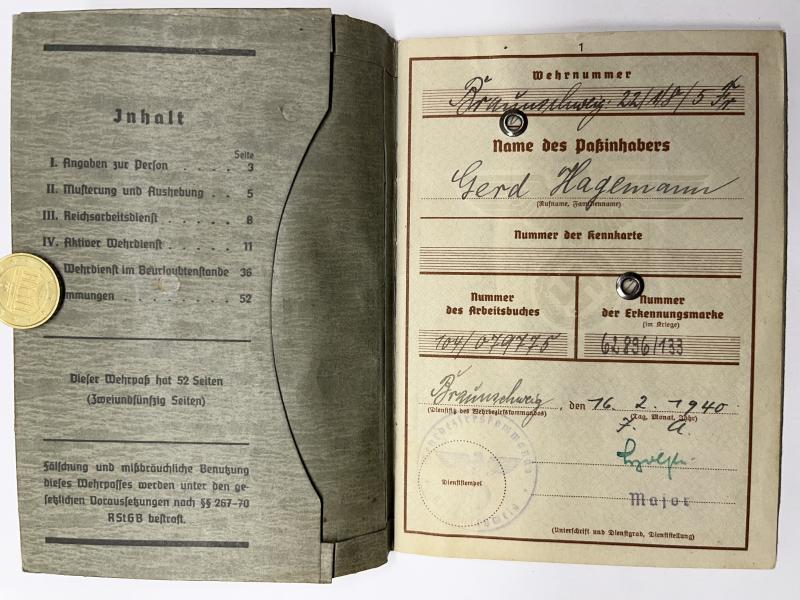 Inhalt
Seite
I. Angaben zur Person . . . . 3
II. Musterung und Aushebung . . 5
III. Reichsarbeitsdienst . . . . 8
IV. Aktiver Wehrdienst . . . . 11
Wehrdienst im Beurlaubtenstande 36
mmungen . . . . . . . . 52
Dieser Wehrpaß hat 52 Seiten
(Zweiundfünfzig Seiten)
Fälschung und mißbräuchliche Benutzung
dieses Wehrpasses werden unter den ge-
setzlichen Voraussetzungen nach §§ 267-70
RStGB bestraft.
1
Wehrnummer
Braunschweig: 22/
Name des Paßinhabers
Gerd Hagemann
(Rufname, Familienname)
Nummer der Kennkarte
Nummer
des Arbeitsbuches
104/079775
Nummer
der Erkennungsmarke
(im Kriege)
62896/133
Braunschweig, den 16. 2. 1940
(Dienstsitz des Wehrbezirkskommandos) (Tag, Monat, Jahr)
Dienststempel
Major
(Unterschrift und Dienstgrad, Dienststellung)